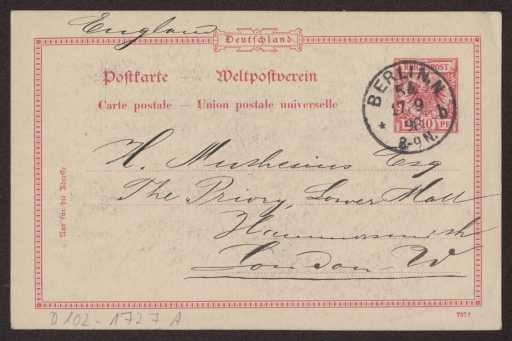 England
Deutschland
Postkarte — Weltpostverein
Carte postale — Union postale universelle
BERLIN, N.
54
17 9
98
8-9 N.
* b
10 PF
H. Muthesius Esq
The Priory, Lower Mall
Hammersmith
London W
Nur für die Adresse
D 102-1727 A